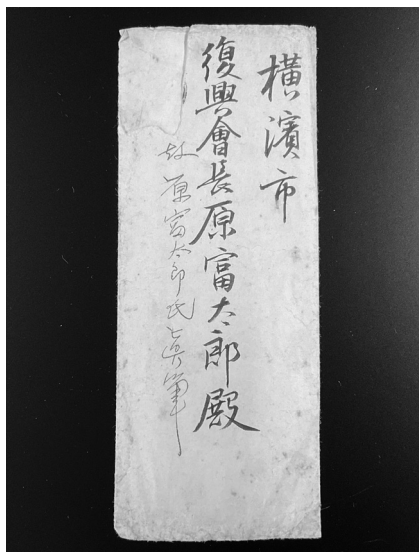 横濱市
復興會長原富太郎殿
故原富太郎氏真筆